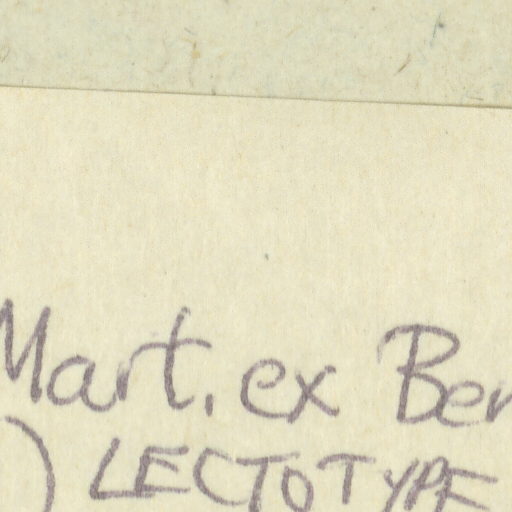 Mart. ex Ben
) LECTOTYPE